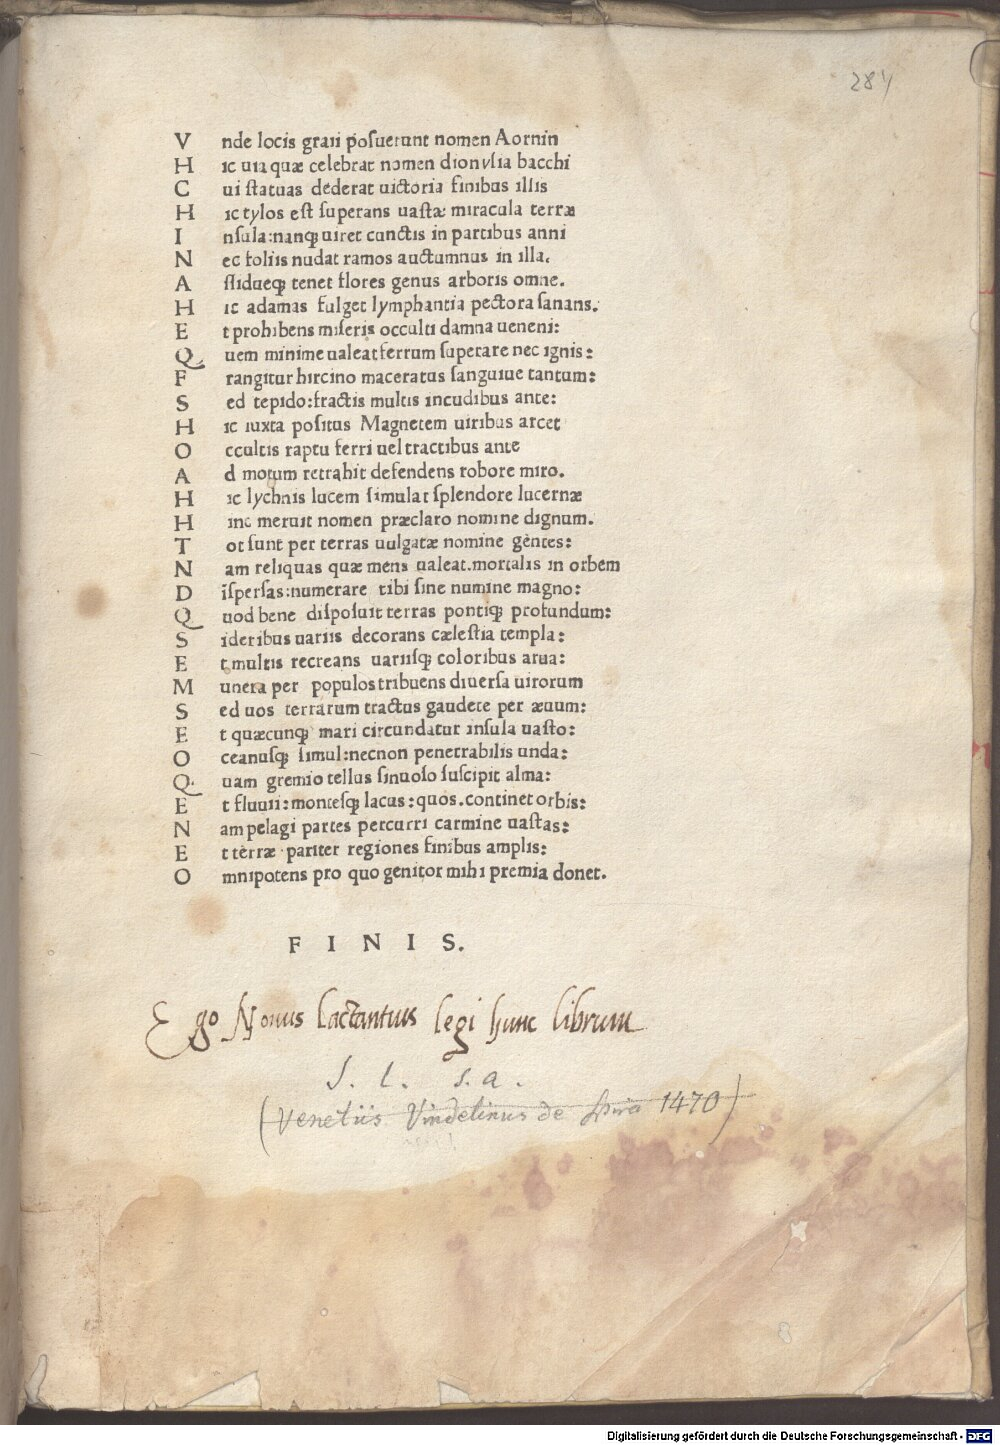 284
V nde locis graii posuerunt nomen Aornin
H ic uia quæ celebrat nomen dionysia bacchi
C ui statuas dederat uictoria finibus illis
H ic tylos est superans uastæ miracula terræ
I nsula:nanq; uiret cunctis in partibus anni
N ec foliis nudat ramos auctumnus in illa.
A ssidueq; tenet flores genus arboris omne.
H ic adamas fulget lymphantia pectora sanans.
E t prohibens miseris occulti damna ueneni:
Q uem minime ualeat ferrum superare nec ignis:
F rangitur hircino maceratus sanguiue tantum:
S ed tepido:fractis multis incudibus ante:
H ic iuxta positus Magnetem uiribus arcet
O ccultis raptu ferri uel tractibus ante
A d motum retrahit defendens robore miro.
H ic lychnis lucem simulat splendore lucernæ
H inc meruit nomen præclaro nomine dignum.
T ot sunt per terras uulgatæ nomine gentes:
N am reliquas quæ mens ualeat.mortalis in orbem
D ispersas:numerare tibi sine numine magno:
Q uod bene disposuit terras pontiq; profundum:
S ideribus uariis decorans cælestia templa:
E t multis recreans uariisq; coloribus arua:
M unera per populos tribuens diuersa uirorum
S ed uos terrarum tractus gaudete per æuum:
E t quæcunq; mari circundatur insula uasto:
O ceanusq; simul:necnon penetrabilis unda:
Q uam gremio tellus sinuoso suscipit alma:
E t fluuii:montesq; lacus:quos.continet orbis:
N am pelagi partes percurri carmine uastas:
E t terræ pariter regiones finibus amplis:
O mnipotens pro quo genitor mihi premia donet.
F I N I S.
Ego Nonus Lactantius legi hunc librum
S. l. s. a.
(Venetiis Vindelinus de Spira 1470)
Digitalisierung gefördert durch die Deutsche Forschungsgemeinschaft - DFG